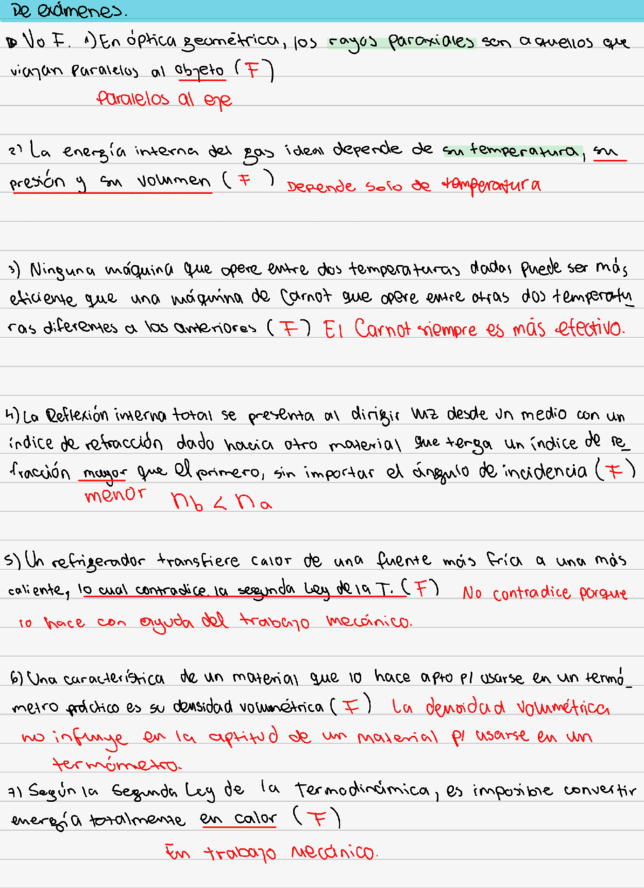 De exámenes.
▷ V o F. 1) En óptica geométrica, los rayos paraxiales son aquellos que
viajan paralelos al objeto (F)
Paralelos al eje
2) La energía interna del gas ideal depende de su temperatura, su
presión y su volumen (F) Depende solo de temperatura
3) Ninguna máquina que opere entre dos temperaturas dadas puede ser más
eficiente que una máquina de Carnot que opere entre otras dos temperatu
ras diferentes a las anteriores (F) El Carnot siempre es más efectivo.
4) La Reflexión interna total se presenta al dirigir luz desde un medio con un
índice de refracción dado hacia otro material que tenga un índice de re_
fracción mayor que el primero, sin importar el ángulo de incidencia (F)
menor nb < na
5) Un refrigerador transfiere calor de una fuente más fría a una más
caliente, lo cual contradice la segunda Ley de la T. (F) No contradice porque
lo hace con ayuda del trabajo mecánico.
6) Una característica de un material que lo hace apto p/ usarse en un termó_
metro práctico es su densidad volumétrica (F) La densidad volumétrica
no influye en la aptitud de un material p/ usarse en un
termómetro.
7) Según la Segunda Ley de la Termodinámica, es imposible convertir
energía totalmente en calor (F)
En trabajo mecánico.